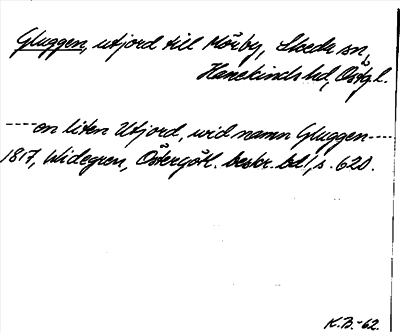 Gluggen, utjord till Mörby, Skeda sn,
Hanekinds hd, Östg.l.
----en liten Utjord, wid namn Gluggen----
1817, Widegren, Östergötl. beskr. bd 1, s. 620.
K.B.-62.